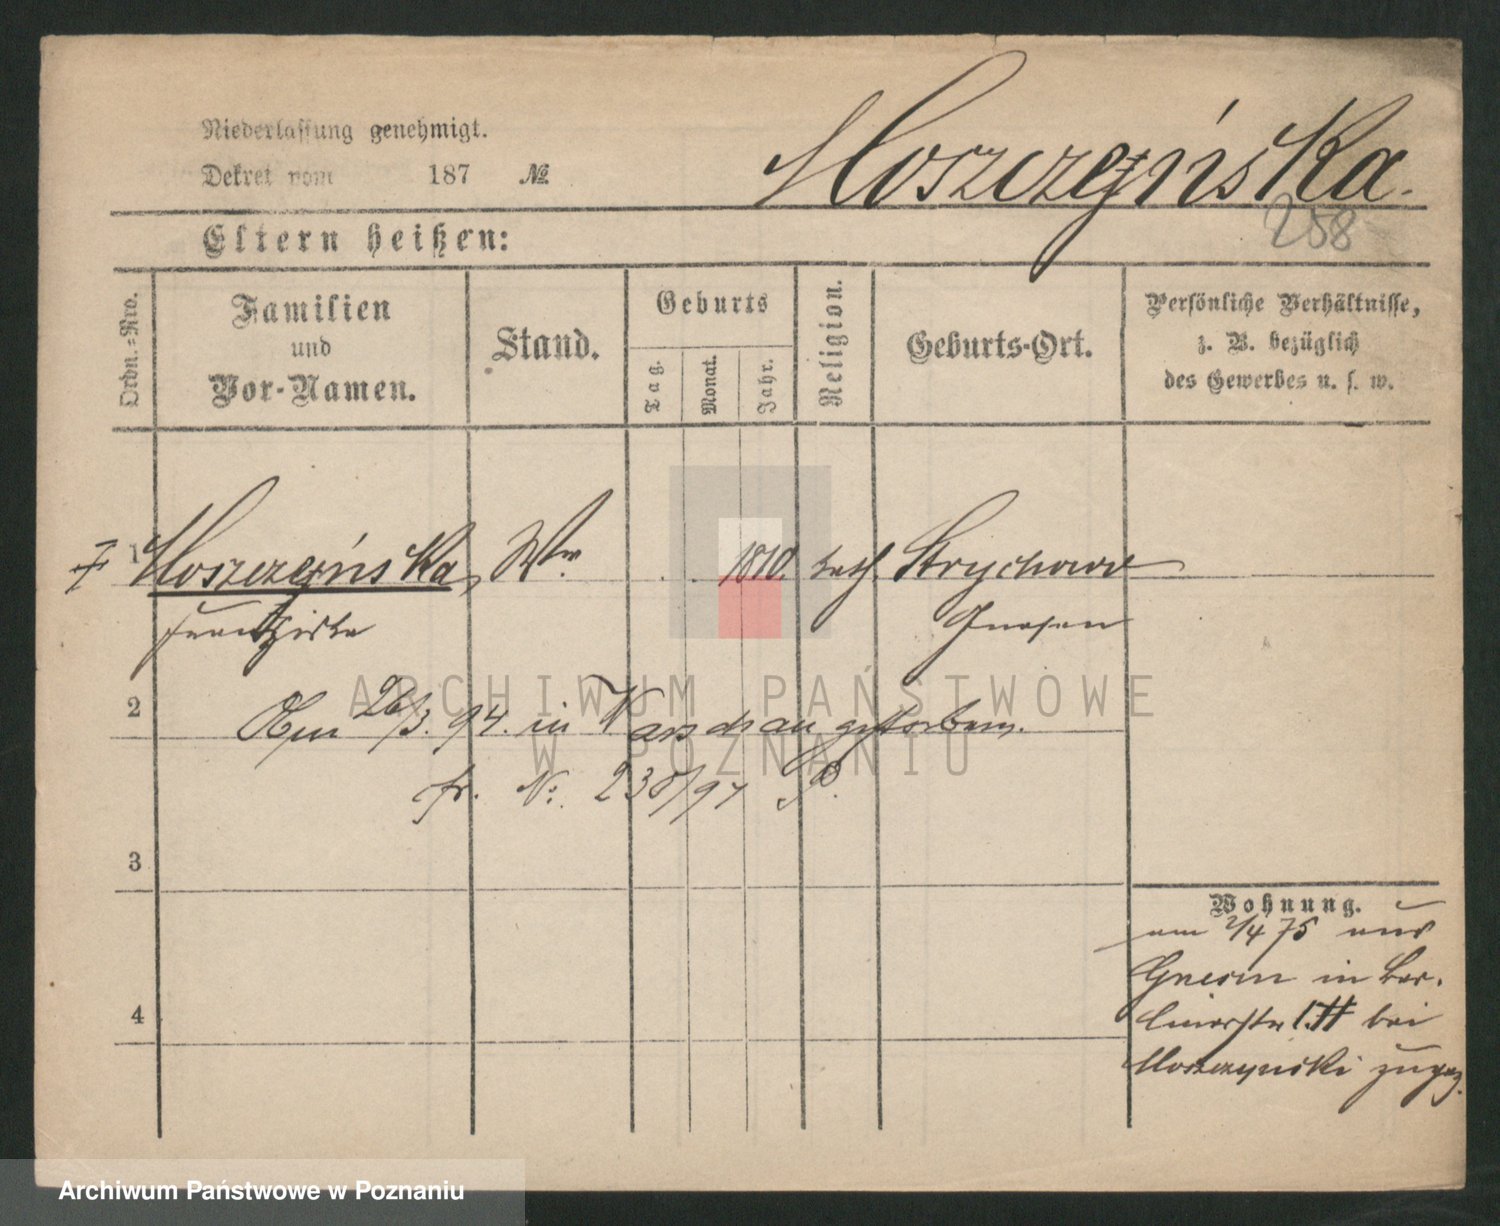 Niederlassung genehmigt.
Dekret vom 187 №
Moszczeńska.
258
Eltern heißen:
Ordn.-Nro.
Familien
und
Vor-Namen.
Stand.
Geburts
Tag.
Monat.
Jahr.
Religion.
Geburts-Ort.
Persönliche Verhältnisse,
z. B. bezüglich
des Gewerbes u. s. w.
1 Moszczeńska, Ww. 1810. kath. Strychowo
Franziska Gnesen
ARCHIWUM PAŃSTWOWE
W POZNANIU
2 26/3. 94. in Warschau gestorben.
fr. N: 238/94
3
Wohnung.
am 2/4 75 aus
Gnesen in Ber-
4 linerstr. bei
Moszczynski zugez.
Archiwum Państwowe w Poznaniu